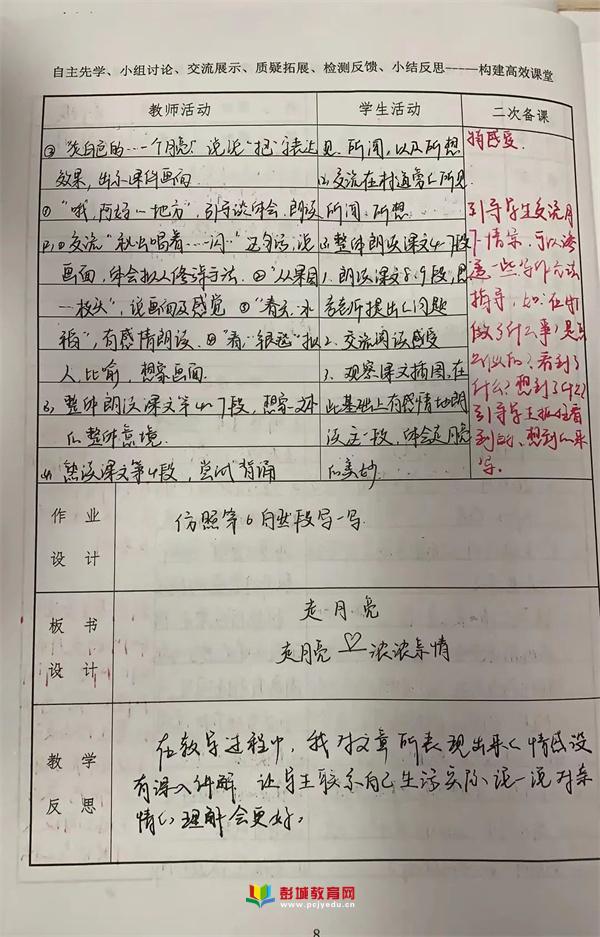 自主先学、小组讨论、交流展示、质疑拓展、检测反馈、小结反思-----构建高效课堂
教师活动
学生活动
二次备课
"淡白色的…一个月亮"说说"把"字
效果，出示课件画面
①"哦，阿妈…地方"，引导谈体会，朗读
②交流"秋虫唱着…一闪"这句话，说
画面，体会拟人修辞手法。③"从果园
…枝头"，说画面及感觉 ④"看看，水
稻"，有感情朗读。⑤"看…银毯"拟
人，比喻，想象画面.
(3)整体朗读课文第4-7段，想象文本
的整体意境.
(4)熟读课文第4段，尝试背诵
见、所闻，以及所想
(2)交流在村道旁的所见
所闻、所想
(3)整体朗读课文4-7段
1.朗读课文8、9段，思
考老师提出的问题
2.交流阅读感受
3.观察课文插图，在
此基础上有感情地朗
读这一段，体会走月亮
的美妙
特感受.
引导学生交流月
下情景，可以渗
透一些写作方法
指导，如:在哪
做了什么事?是怎
么做的?看到了
什么?想到了什么?
引导学生抓住看
到的、想到的来
写。
作业
设计
仿照第6自然段写一写.
板书
设计
走月亮
走月亮 — 浓浓亲情
教学
反思
在教学过程中，我对文章所表现出来的情感没
有深入讲解，让学生联系自己生活实际说一说对亲
情的理解会更好。
彭城教育网
www.pcjyedu.cn
8